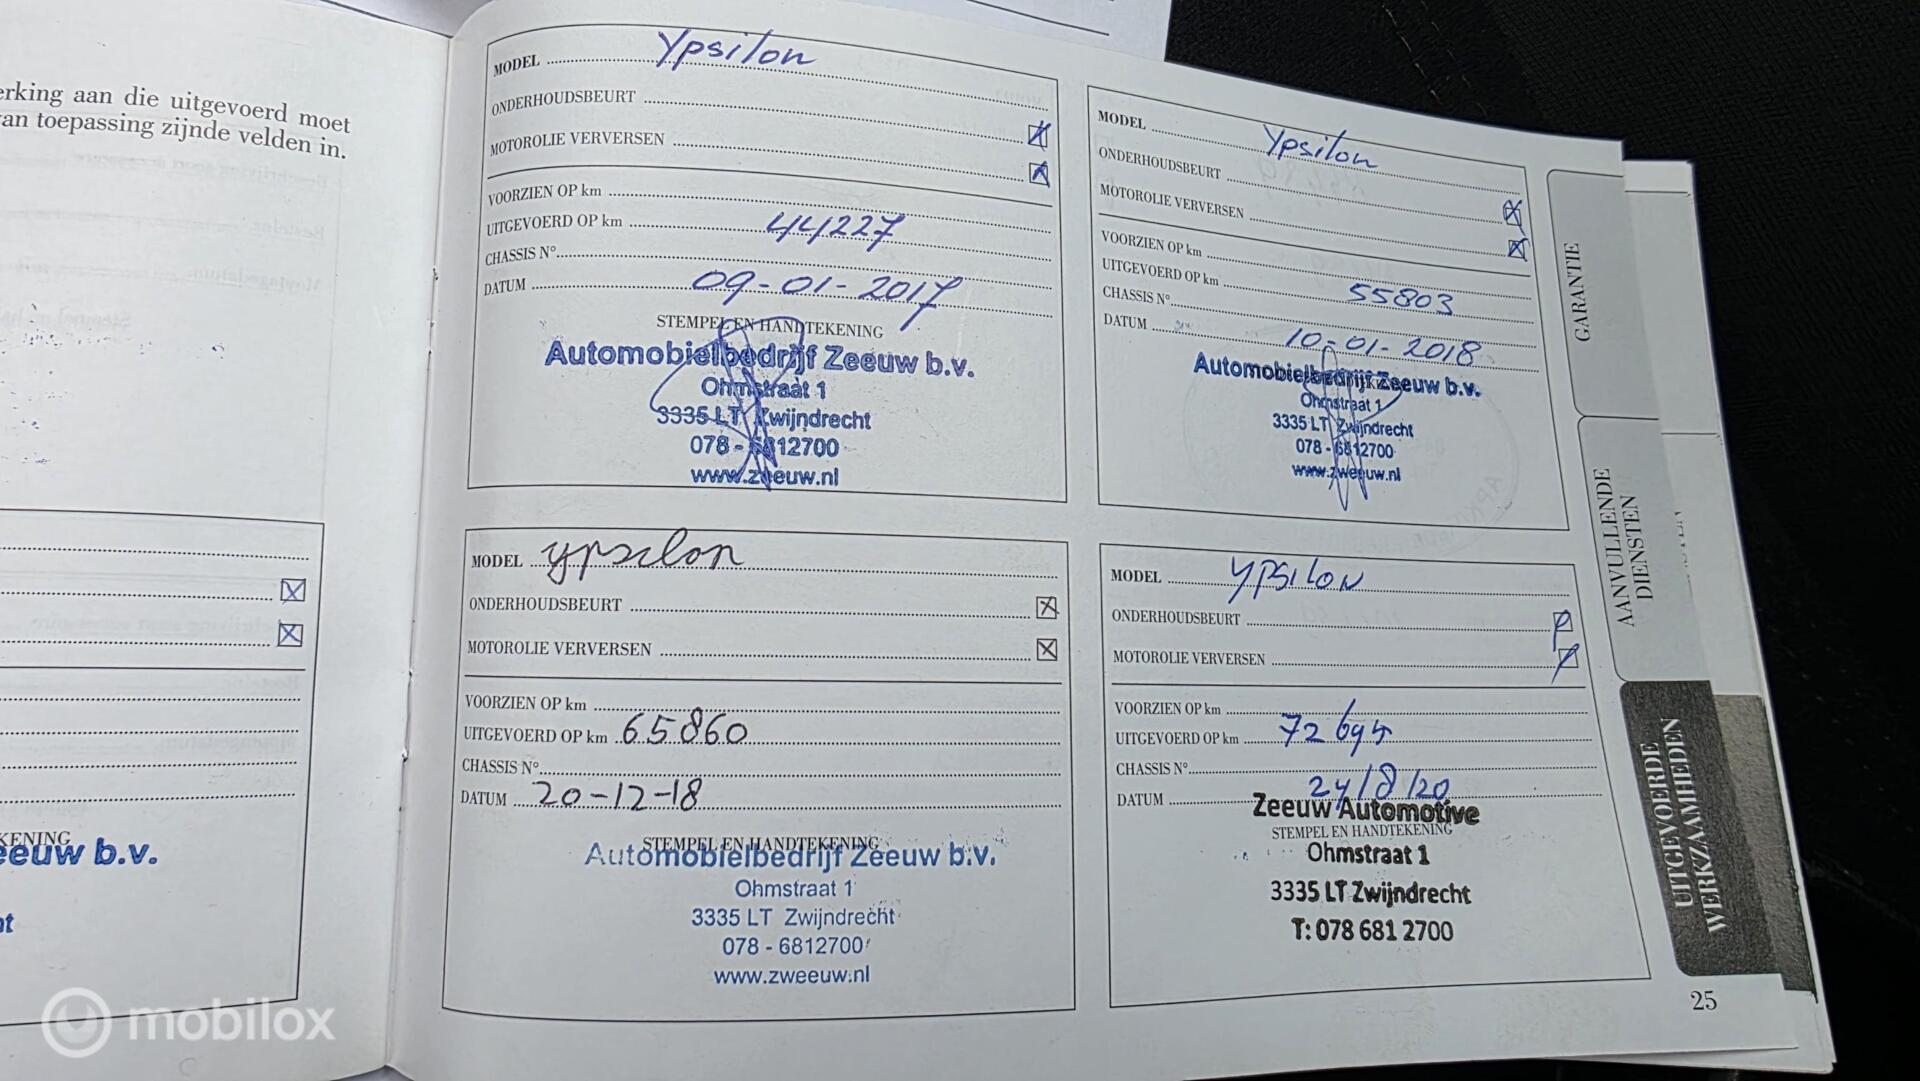 erking aan die uitgevoerd moet
an toepassing zijnde velden in.
KENING
eeuw b.v.
MODEL Ypsilon
ONDERHOUDSBEURT
MOTOROLIE VERVERSEN
VOORZIEN OP km
UITGEVOERD OP km 44227
CHASSIS N°
DATUM 09-01-2017
STEMPEL EN HANDTEKENING
Automobielbedrijf Zeeuw b.v.
Ohmstraat 1
3335 LT Zwijndrecht
078 - 6812700
www.zeeuw.nl
MODEL Ypsilon
ONDERHOUDSBEURT
MOTOROLIE VERVERSEN
VOORZIEN OP km
UITGEVOERD OP km 55803
CHASSIS N°
DATUM 10-01-2018
Automobielbedrijf Zeeuw b.v.
Ohmstraat 1
3335 LT Zwijndrecht
078 - 6812700
www.zweeuw.nl
MODEL ypsilon
ONDERHOUDSBEURT
MOTOROLIE VERVERSEN
VOORZIEN OP km
UITGEVOERD OP km 65860
CHASSIS N°
DATUM 20-12-18
STEMPEL EN HANDTEKENING
Automobielbedrijf Zeeuw b.v.
Ohmstraat 1
3335 LT Zwijndrecht
078 - 6812700
www.zweeuw.nl
MODEL YPSILON
ONDERHOUDSBEURT
MOTOROLIE VERVERSEN
VOORZIEN OP km
UITGEVOERD OP km
CHASSIS N°
DATUM 24/8/20
Zeeuw Automotive
STEMPEL EN HANDTEKENING
Ohmstraat 1
3335 LT Zwijndrecht
T: 078 681 2700
GARANTIE
AANVULLENDE
DIENSTEN
UITGEVOERDE
WERKZAAMHEDEN
25
mobilox